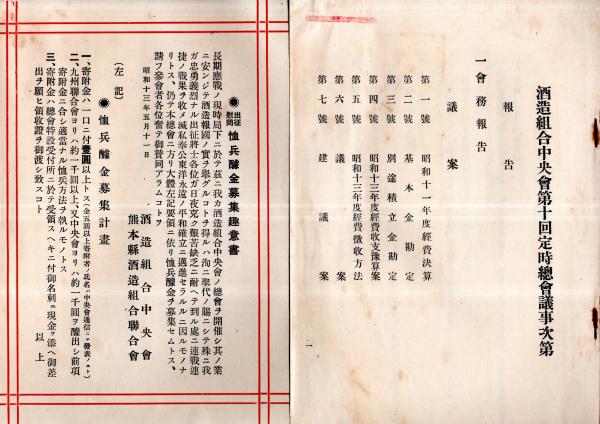 酒造組合中央會第十回定時總會議事次第
報告
一會務報告
議案
第一號 昭和十一年度經費決算
第二號 基本金勘定
第三號 別途積立金勘定
第四號 昭和十三年度經費收支豫算案
第五號 昭和十三年度經費徵收方法
第六號 議案
第七號 建議案
一
●出征慰問恤兵醵金募集趣意書
長期應戰ノ現時局下ニ於テ茲ニ我カ酒造組合中央會ノ總會ヲ開催シ其ノ業
ニ安ンジテ酒造報國ノ實ヲ擧グルコトヲ得ルハ洵ニ聖代ノ賜ニシテ殊ニ我
ガ忠勇義烈ナル出征將士各位ガ日夜克ク艱苦缺乏ニ耐ヘテ到ル處ニ連戰連
捷ノ戰果ヲ收メ滅私奉公東洋永遠ノ平和確立ニ邁進セラルルニ因ルモノナ
リトス、仍テ本總會ニ方リ大體左記要領ニ依リ恤兵醵金ヲ募集セムトス、
請フ參會者各位奮テ御贊同アラムコトヲ
昭和十三年五月十一日
酒造組合中央會
熊本縣酒造組合聯合會
(左記)
●恤兵醵金募集計畫
一、寄附金ハ一口ニ付壹圓以上トス(金五圓以上寄附者ノ氏名ハ中央會通信ニテ發表ノコト)
二、九州聯合會ヨリハ約一千圓以上、又中央會ヨリハ約一千圓ヲ醵出シ前項
寄附金ニ合シ適當ナル恤兵方法ヲ執ルモノトス
三、寄附金ハ總會特設受付所ニ於テ受領スヘキニ付御名刺ニ現金ヲ添ヘ御差
出ヲ願ヒ領收證ヲ御渡シ致スコト
以上